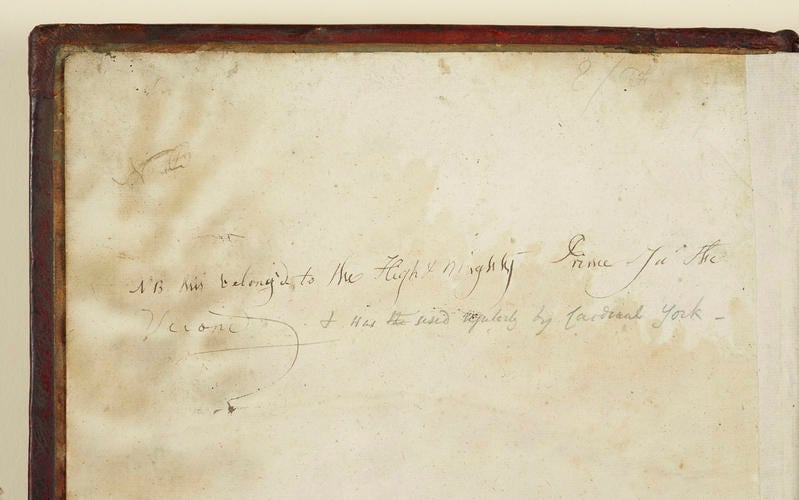 NB this belong'd to the High & Mighty Prime Ja' the
Second & was the used regularly by Cardinal York -